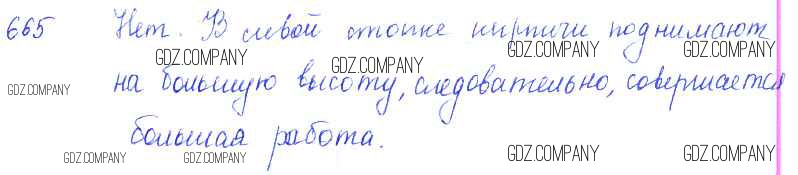 665 Нет. В левой стопке кирпичи поднимают
GDZ.COMPANY GDZ.COMPANY GDZ.COMPANY GDZ.COMPANY
на большую высоту, следовательно, совершается
GDZ.COMPANY
большая работа.
GDZ.COMPANY GDZ.COMPANY GDZ.COMPANY GDZ.COMPANY